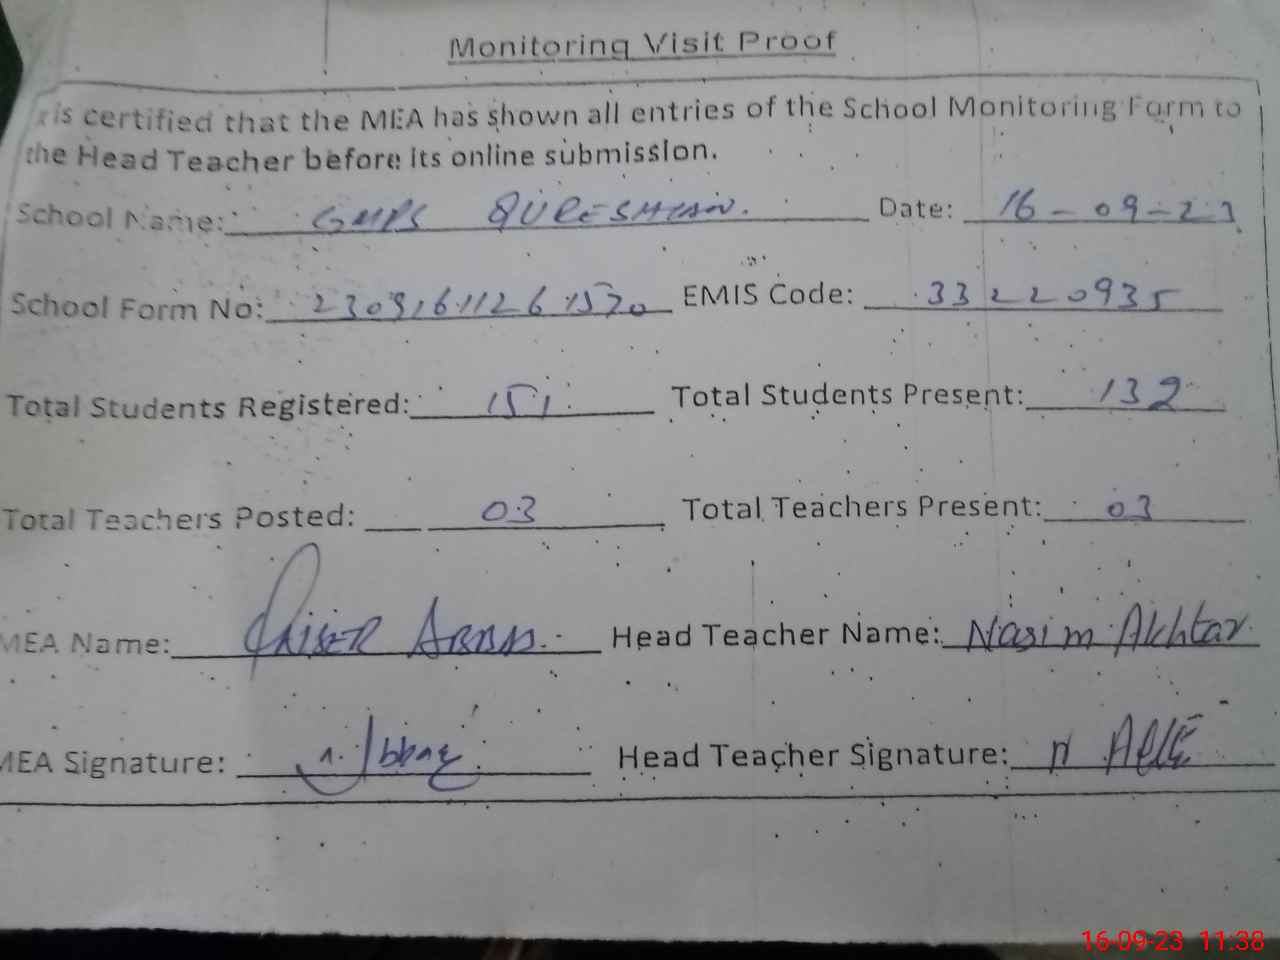 Monitoring Visit Proof
is certified that the MEA has shown all entries of the School Monitoring Form to
the Head Teacher before its online submission.
School Name: GMPS QURESHIAN. Date: 16-09-23
School Form No: EMIS Code: 33220935
Total Students Registered: 151 Total Students Present: 132
Total Teachers Posted: 03 Total Teachers Present: 03
MEA Name: QAISER ABBAS. Head Teacher Name: Nasim Akhtar
MEA Signature: Abbas Head Teacher Signature: N
16-09-23 11:38